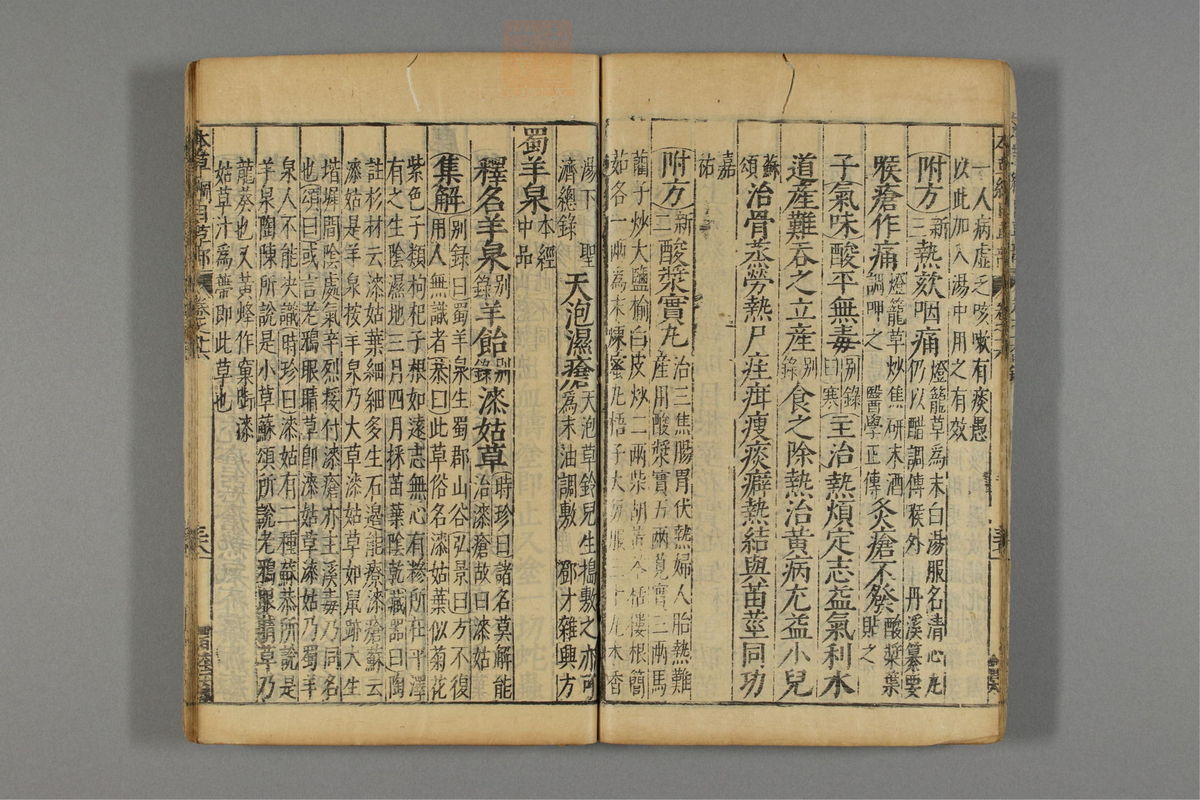 一人病虛乏咳嗽有痰愚
以此加入湯中用之有效
附方新三熱欬咽痛燈籠草為末白湯服名清心丸
仍以醋調傅喉外丹溪纂要
喉瘡作痛燈籠草炒焦研末酒
調呷之醫學正傳灸瘡不發酸漿葉
貼之
子氣味酸平無毒别録
曰寒主治熱煩定志益氣利水
道產難吞之立產别
録食之除熱治黃病尤益小兒
蘇
頌治骨蒸勞熱尸疰疳瘦痰癖熱結與苗莖同功
嘉
祐
附方新二酸漿實丸治三焦腸胃伏熱婦人胎熱難
產用酸漿實五兩莧實三兩馬
藺子炒大鹽榆白皮炒二兩柴胡黃芩栝樓根䕡
茹各一兩為末煉蜜丸梧子大
木香
湯下聖
濟總錄天泡濕瘡天泡草鈴兒生搗敷之亦可
為末油調敷鄧才雜興方
蜀羊泉本經
中品
釋名羊泉别
録羊飴别
録漆姑草時珍曰諸名莫解能
治漆瘡故曰漆姑
集解别錄曰蜀羊泉生蜀郡山谷弘景曰方不復
用人無識者恭曰此草俗名漆姑葉似菊花
紫色子類枸杞子根如遠志無心有糝所在平澤
有之生陰濕地三月四月採苗葉陰乾藏器曰陶
註杉材云漆姑葉細細多生石邊能療漆瘡蘇云
漆姑是羊泉按羊泉乃大草漆姑草如鼠跡大生
堦墀間陰處氣辛烈挼付漆瘡亦主溪毒乃同名
也頌曰或言老鴉眼睛草卽漆姑草漆姑乃蜀羊
泉人不能决識時珍曰漆姑有二種蘇恭所說是
羊泉陶陳所說是小草蘇頌所說老鴉眼睛草乃
龍葵也又黃蜂作窠啣漆
姑草汁為蒂即此草也
本草綱目草部
卷之十六